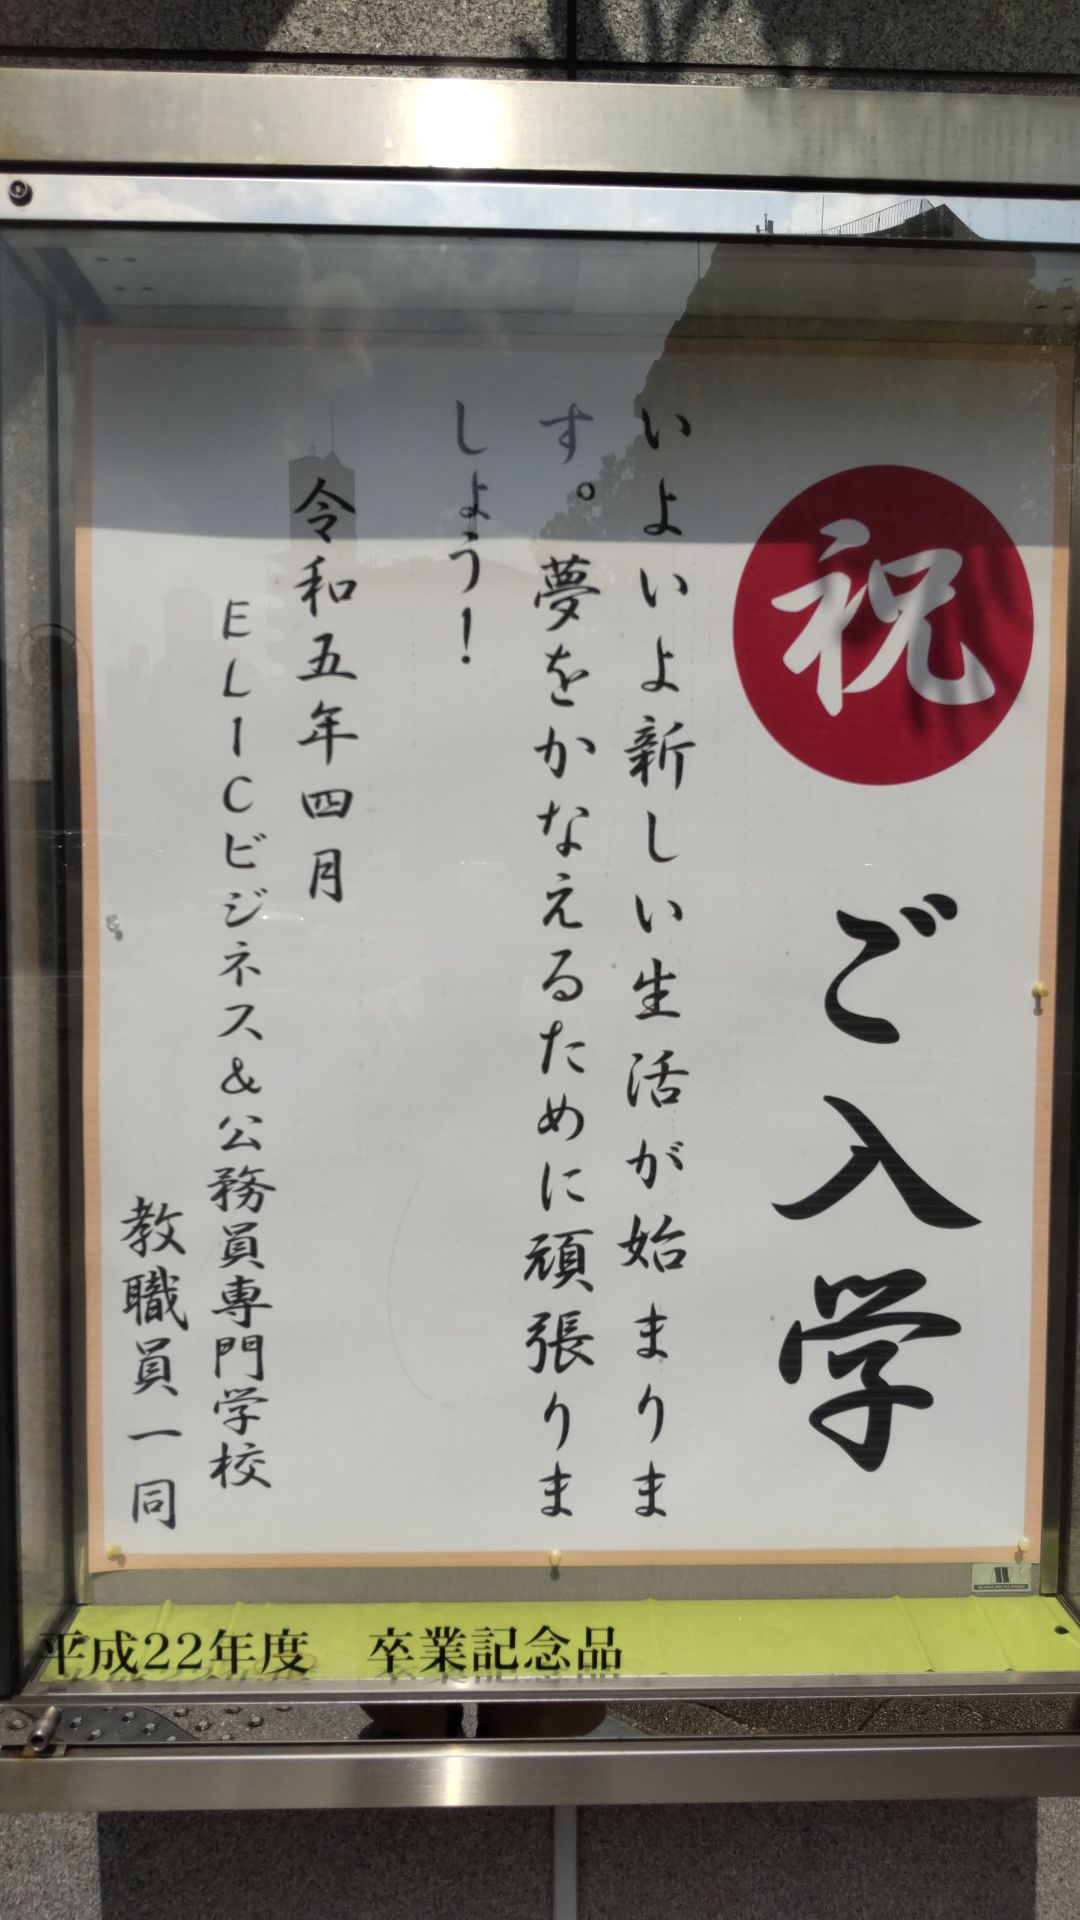 祝 ご入学
いよいよ新しい生活が始まりま
す。夢をかなえるために頑張りま
しょう！
令和五年四月
ELICビジネス&公務員専門学校
教職員一同
平成22年度 卒業記念品